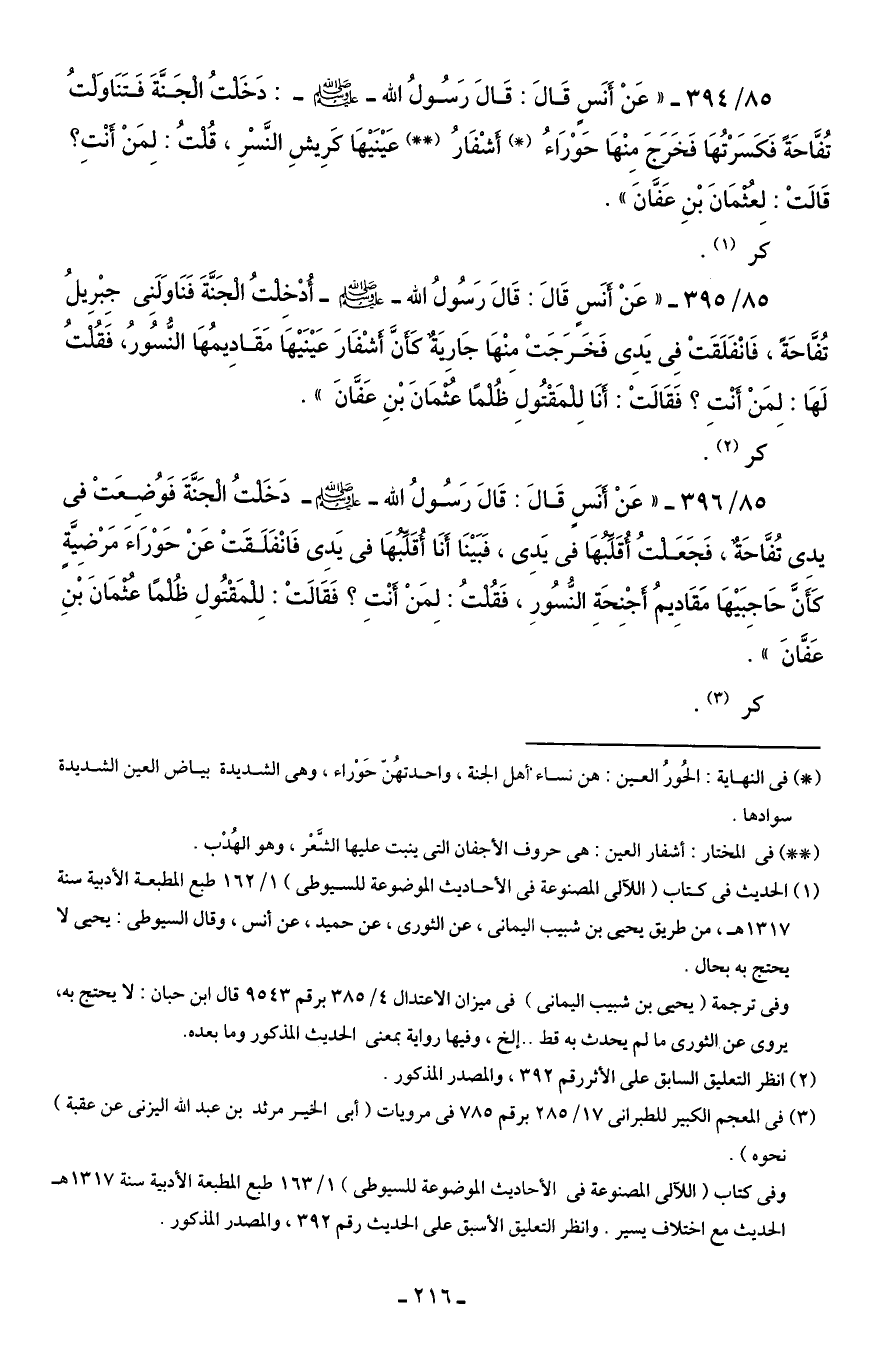 ٨٥/ ٣٩٤ ـ « عَنْ أَنَسٍ قَالَ : قَالَ رَسُولُ الله ـ ﷺ ـ : دَخَلْتُ الْجَنَّةَ فَتَنَاوَلْتُ
تُفَّاحَةً فَكَسَرْتُهَا فَخَرَجَ مِنْهَا حَوْرَاءُ (*) أَشْفَارُ (**) عَيْنَيْهَا كَرِيشِ النَّسْرِ ، قُلْتُ : لِمَنْ أَنْتِ؟
قَالَتْ : لِعُثْمَانَ بْنِ عَفَّانَ » .
كر (١) .
٨٥/ ٣٩٥ ـ « عَنْ أَنَسٍ قَالَ : قَالَ رَسُولُ الله ـ ﷺ ـ أُدْخِلْتُ الْجَنَّةَ فَنَاوَلَنِى جِبْرِيلُ
تُفَّاحَةً ، فَانْفَلَقَتْ فِى يَدِى فَخَرَجَتْ مِنْهَا جَارِيَةٌ كَأَنَّ أَشْفَارَ عَيْنَيْهَا مَقَادِيمُهَا النُّسُورُ، فَقُلْتُ
لَهَا : لِمَنْ أَنْتِ ؟ فَقَالَتْ : أَنَا لِلْمَقْتُولِ ظُلْمًا عُثْمَانَ بْنِ عَفَّانَ » .
كر (٢) .
٨٥/ ٣٩٦ ـ « عَنْ أَنَسٍ قَالَ : قَالَ رَسُولُ الله ـ ﷺ ـ دَخَلْتُ الْجَنَّةَ فَوُضِعَتْ فِى
يدِى تُفَّاحَةٌ ، فَجَعَلْتُ أُقَلِّبُهَا فِى يَدِى ، فَبَيْنَا أَنَا أُقَلِّبُهَا فِى يَدِى فَانْفَلَقَتْ عَنْ حَوْرَاءَ مَرْضِيَّةٍ
كَأَنَّ حَاجِبَيْهَا مَقَادِيمُ أَجْنِحَةِ النُّسُورِ ، فَقُلْتُ : لِمَنْ أَنْتِ ؟ فَقَالَتْ : لِلْمَقْتُولِ ظُلْمًا عُثْمَانَ بْنِ
عَفَّانَ » .
كر (٣) .
(*) فى النهاية : الحُورُ العين : هن نساء أهل الجنة ، واحدتهُنّ حَوْراء ، وهى الشديدة بياض العين الشديدة
سوادها .
(**) فى المختار : أشفار العين : هى حروف الأجفان التى ينبت عليها الشَّعْر ، وهو الهُدْب .
(١) الحديث فى كتاب ( اللآلى المصنوعة فى الأحاديث الموضوعة للسيوطى ) ١/ ١٦٢ طبع المطبعة الأدبية سنة
١٣١٧هـ ، من طريق يحيى بن شبيب اليمانى ، عن الثورى ، عن حميد ، عن أنس ، وقال السيوطى : يحيى لا
يحتج به بحال .
وفى ترجمة ( يحيى بن شبيب اليمانى ) فى ميزان الاعتدال ٤/ ٣٨٥ برقم ٩٥٤٣ قال ابن حبان : لا يحتج به،
يروى عن الثورى ما لم يحدث به قط ..إلخ ، وفيها رواية بمعنى الحديث المذكور وما بعده.
(٢) انظر التعليق السابق على الأثررقم ٣٩٢ ، والمصدر المذكور .
(٣) فى المعجم الكبير للطبرانى ١٧/ ٢٨٥ برقم ٧٨٥ فى مرويات ( أبى الخير مرثد بن عبد الله اليزنى عن عقبة )
نحوه ) .
وفى كتاب ( اللآلى المصنوعة فى الأحاديث الموضوعة للسيوطى ) ١/ ١٦٣ طبع المطبعة الأدبية سنة ١٣١٧هـ
الحديث مع اختلاف يسير . وانظر التعليق الأسبق على الحديث رقم ٣٩٢ ، والمصدر المذكور .
ـ ٢١٦ ـ